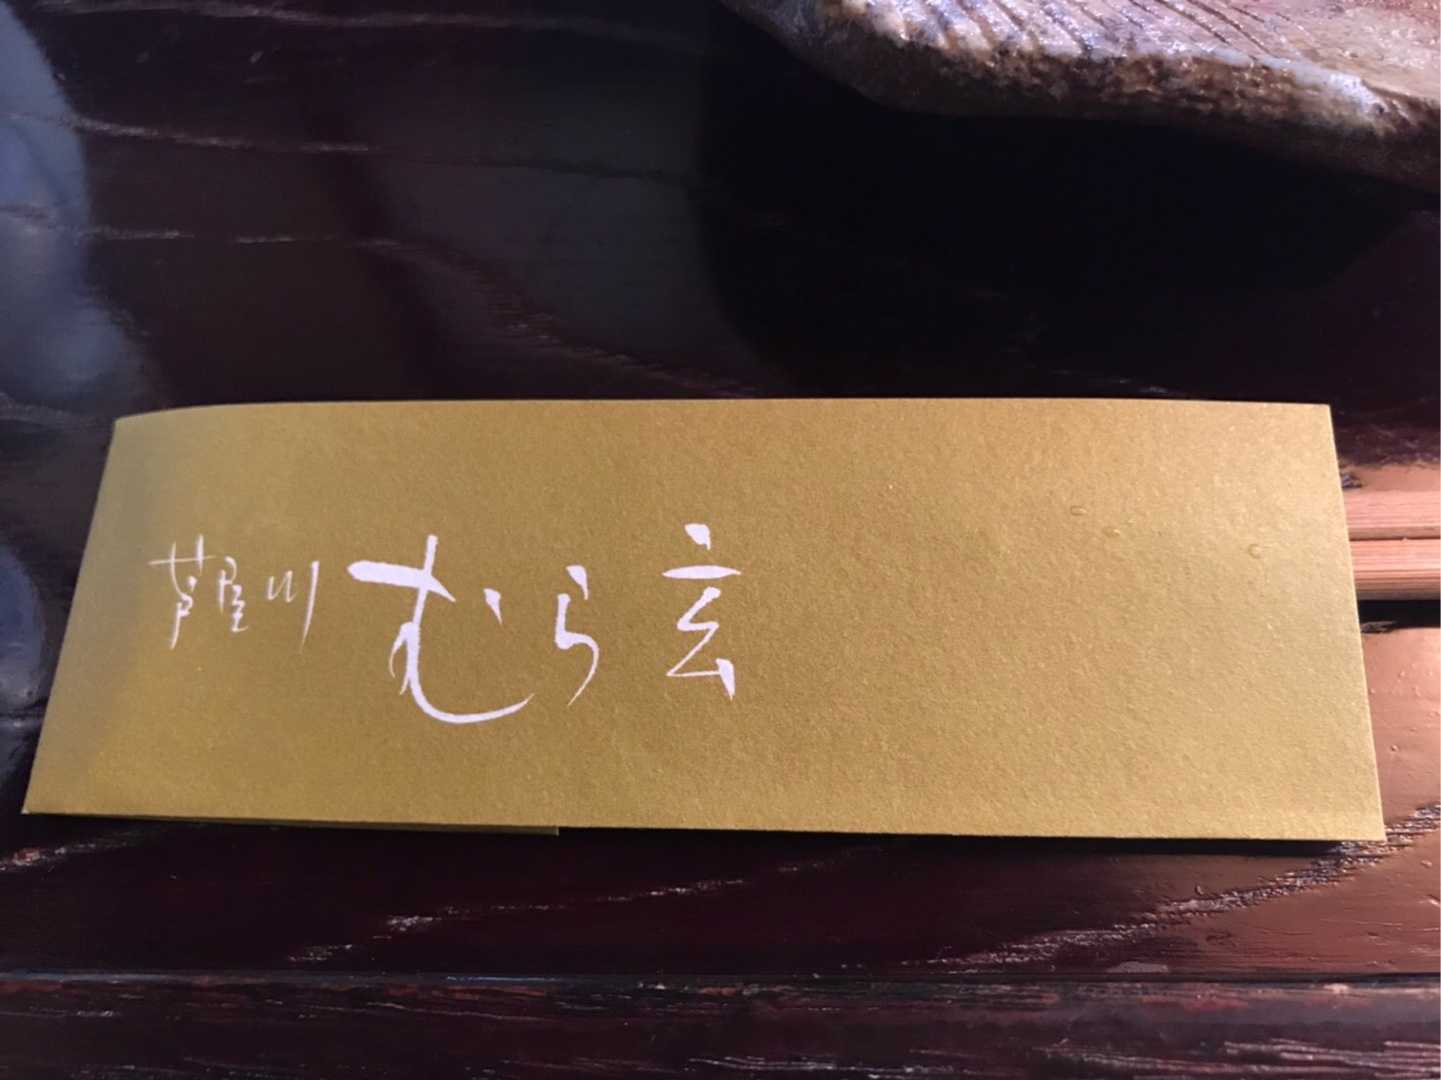 芦屋川 むら玄